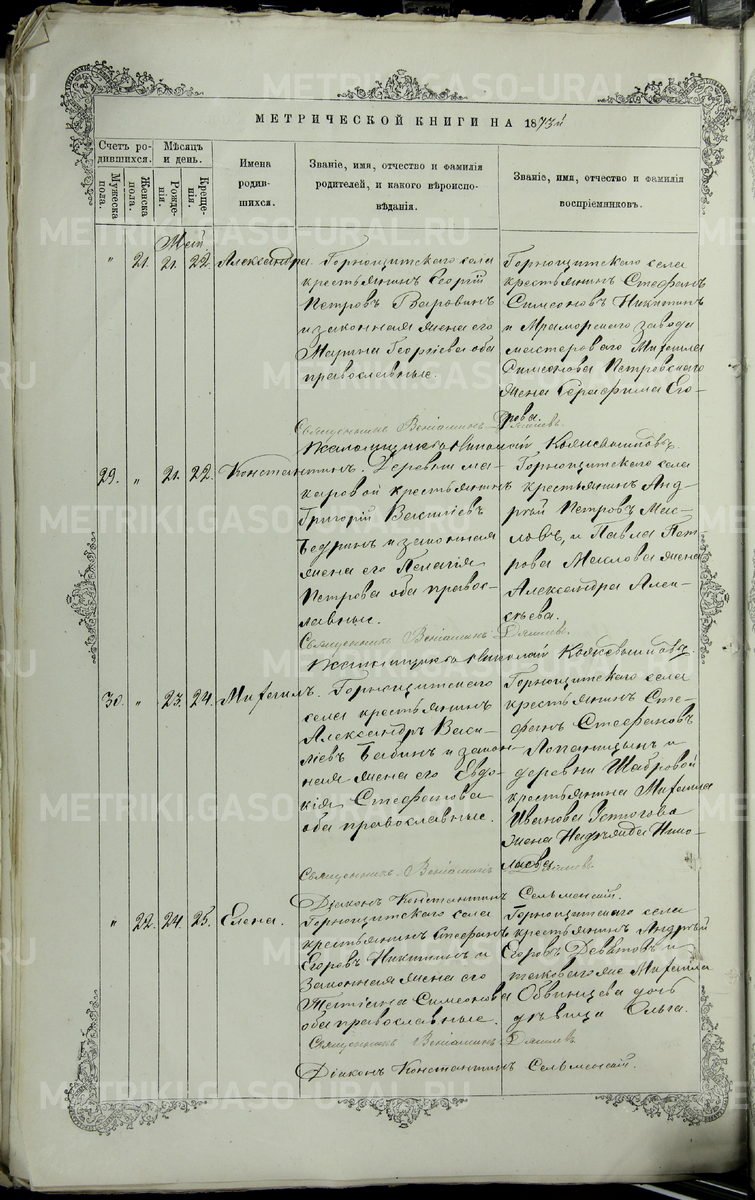 МЕТРИЧЕСКОЙ КНИГИ НА 1873й
Счетъ ро-
дившихся.
Мужеска
пола.
Женска
пола.
Мѣсяцъ
и день.
Рожде-
нія.
Креще-
нія.
Имена
родив-
шихся.
Званіе, имя, отчество и фамилія
родителей, и какого вѣроиспо-
вѣданія.
Званіе, имя, отчество и фамилія
воспріемниковъ.
Май
" 21. 21. 22. Александра.
Горнощитскаго села
крестьянинъ Георгій
Петровъ
и законная жена его
Марина Георгіева оба
православные.
Горнощитскаго села
крестьянинъ Стефанъ
Симеоновъ Никитинъ
и Мраморскаго завода
мастероваго Михаила
Симеонова Петровскаго
жена Серафима Его-
рова.
Священникъ Веніаминъ
29. " 21. 22. Константинъ.
Деревни Ма-
каровой крестьянинъ
Григорій Василіевъ
Бедринъ и законная
жена его Пелагія
Петрова оба правос-
лавные.
Горнощитскаго села
крестьянинъ Анд-
рей Петровъ Мас-
ловъ, и Павла Пет-
рова Маслова жена
Александра Алек-
сѣева.
Священникъ Веніаминъ
30. " 23. 24. Михаилъ.
Горнощитскаго
села крестьянинъ
Александръ Васи-
ліевъ Бабинъ и закон-
ная жена его Евдо-
кія Стефанова
оба православные.
Горнощитскаго села
крестьянинъ Сте-
фанъ Стефановъ
Лопатицынъ и
деревни Шабровой
крестьянина Михаила
Иванова Устюгова
жена Надежда Нико-
лаева.
Священникъ Веніаминъ
Діаконъ Константинъ Сельменскій.
" 22. 24. 25. Елена.
Горнощитскаго села
крестьянинъ Стефанъ
Егоровъ Никитинъ и
законная жена его
Татіана Симеонова
оба православные.
Горнощитскаго села
крестьянинъ Андрей
Егоровъ Девятовъ и
таковаго же Михаила
Обвинцева дочь
дѣвица Ольга.
Священникъ Веніаминъ
Діаконъ Константинъ Сельменскій.
METRIKI.GASO-URAL.RU